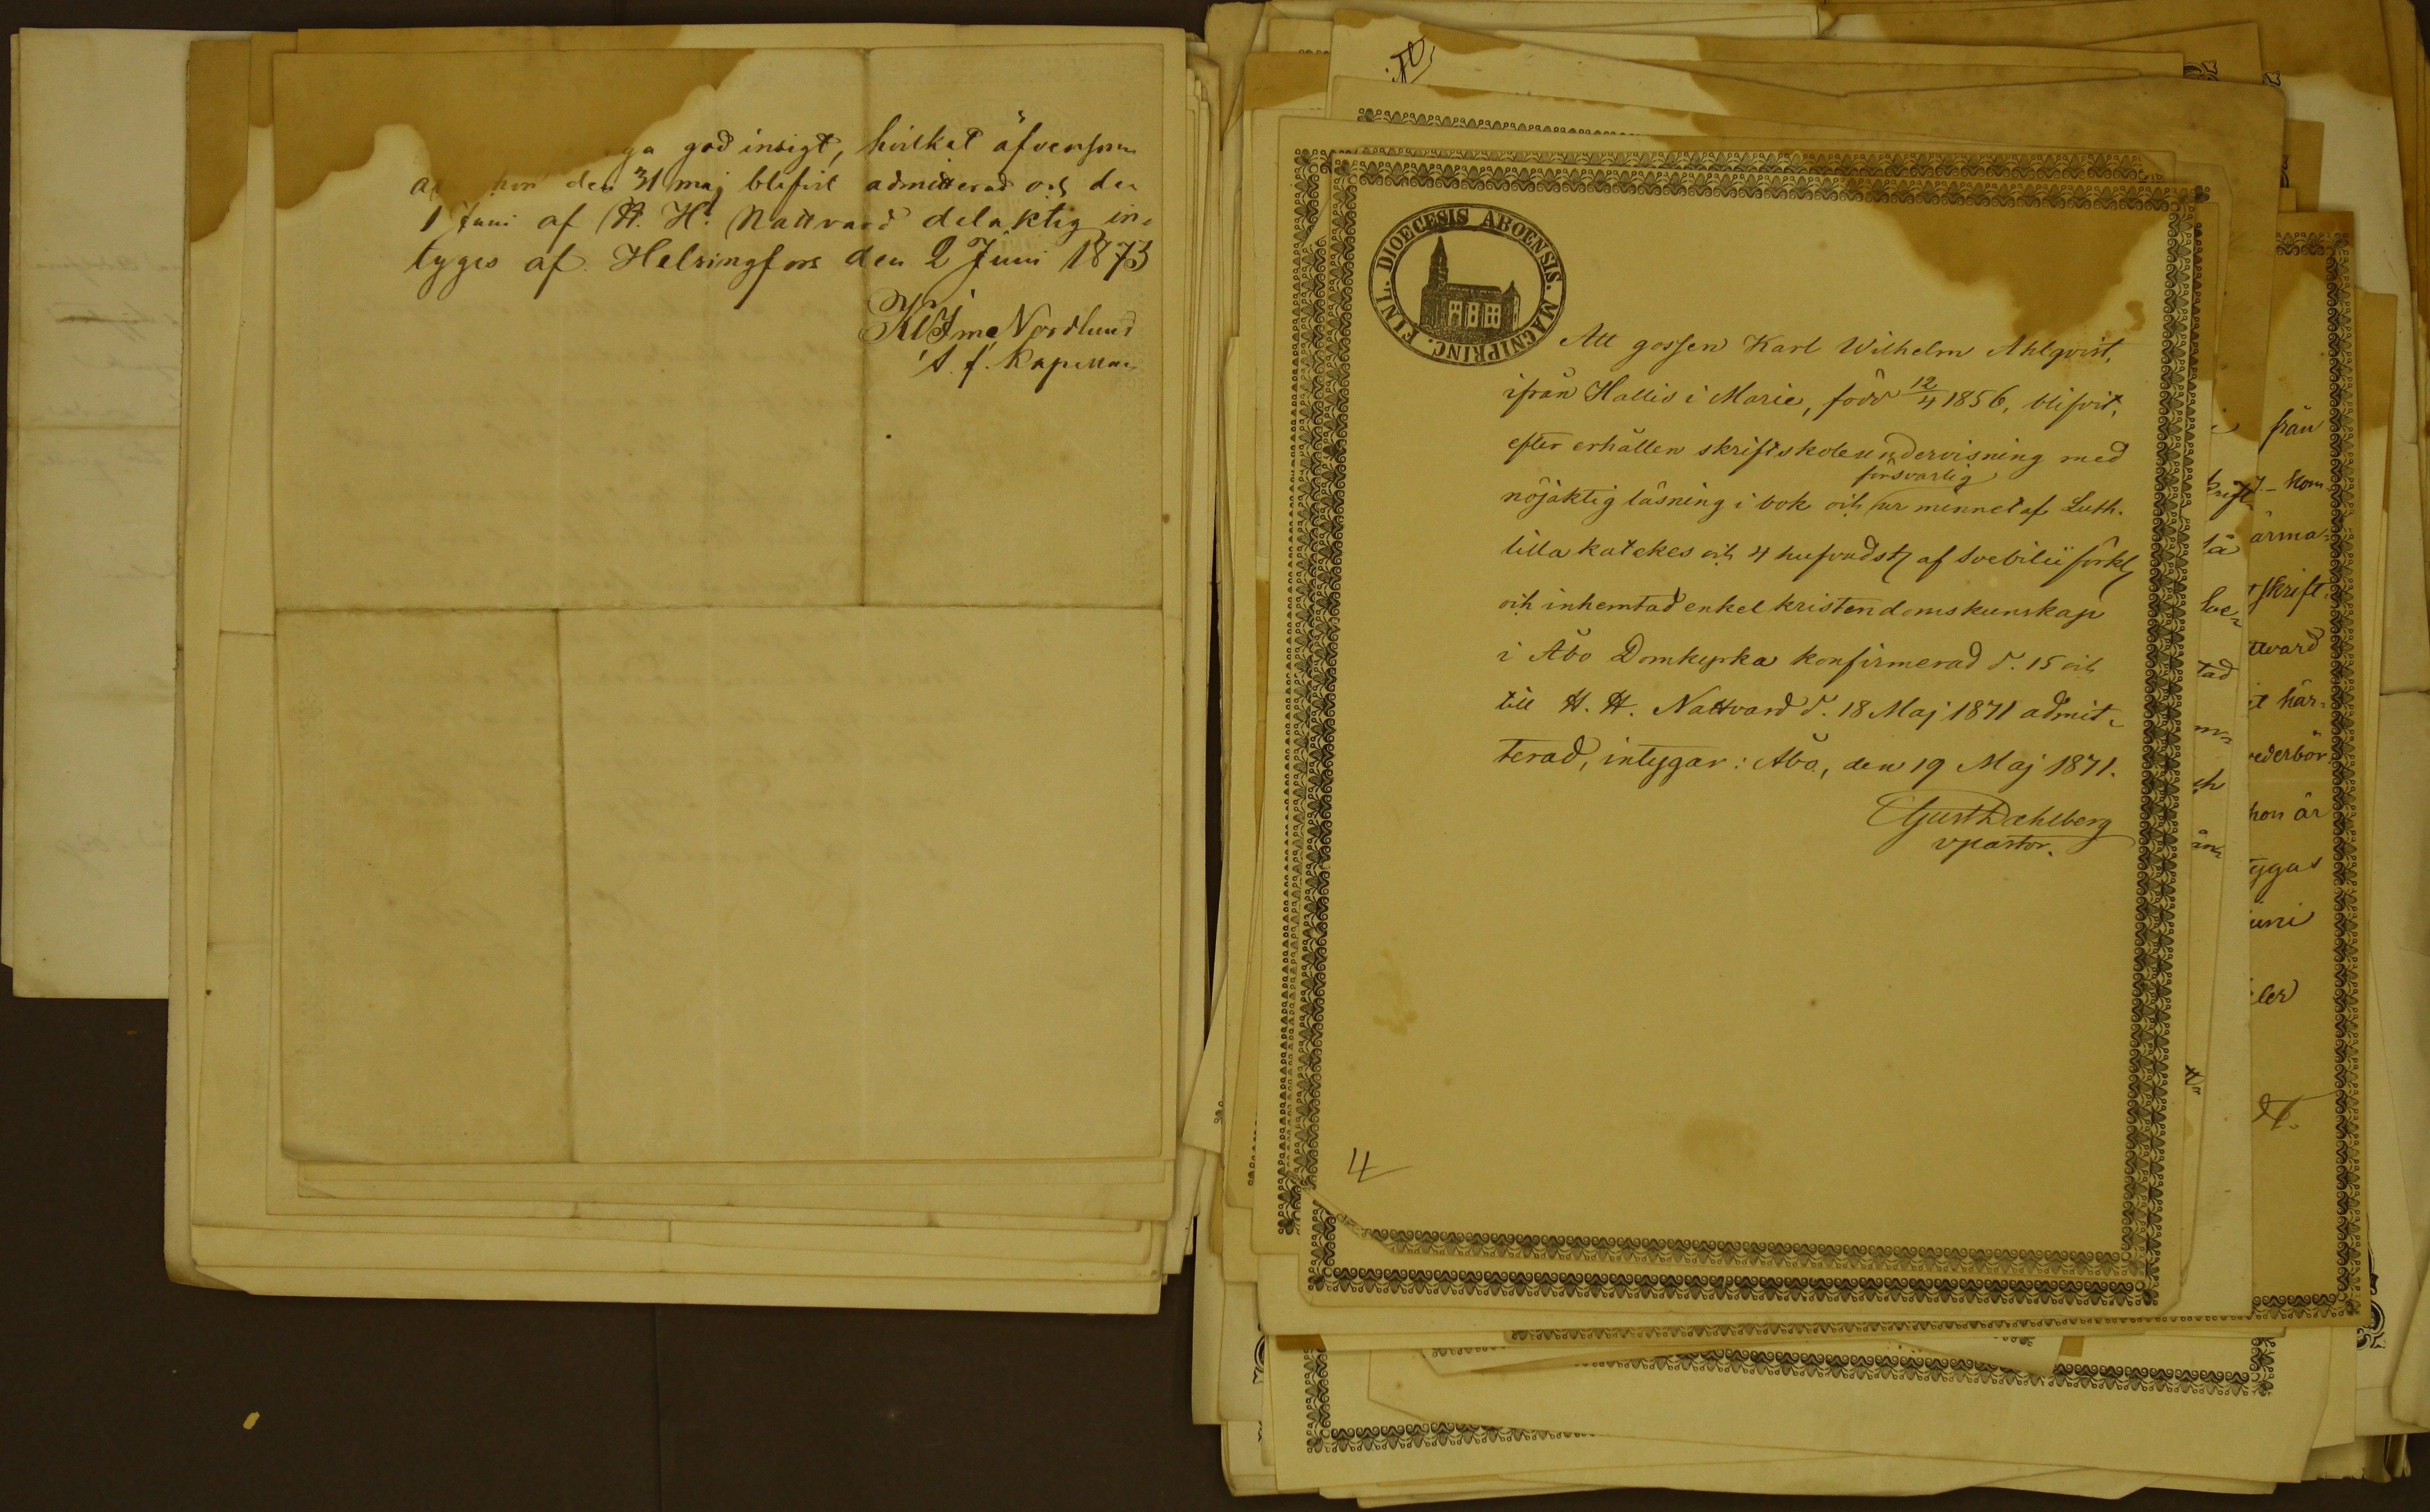 god insigt, hvilket äfvensom
hon den 31 maj blifvit admitterad och den
1 Juni af H. H. Nattvard delaktig in-
tyges af. Helsingfors den 2 Juni 1873
Nordlund
s. f. Kapellan
FINL. DIOECESIS ABOENSIS. MAGNIPRINC.
Att gossen Karl Wilhelm Ahlqvist,
ifrån Hallis i Marie, född 12/4 1856, blifvit,
efter erhållen skriftskoleundervisning med
försvarlig
nöjaktig läsning i bok och ur minnet af Luth.
lilla katekes och 4 hufvudst af Svebilii förkl
och inhemtad enkel kristendomskunskap
i Åbo Domkyrka konfirmerad d. 15 och
till H. H. Nattvard d. 18 Maj 1871 admit-
terad, intygar: Åbo, den 19 Maj 1871.
Gust Dahlberg
vpastor.
4
från
ärma-
skrift-
ttvard
t här-
vederbör
hon är
ygas
uni
ler